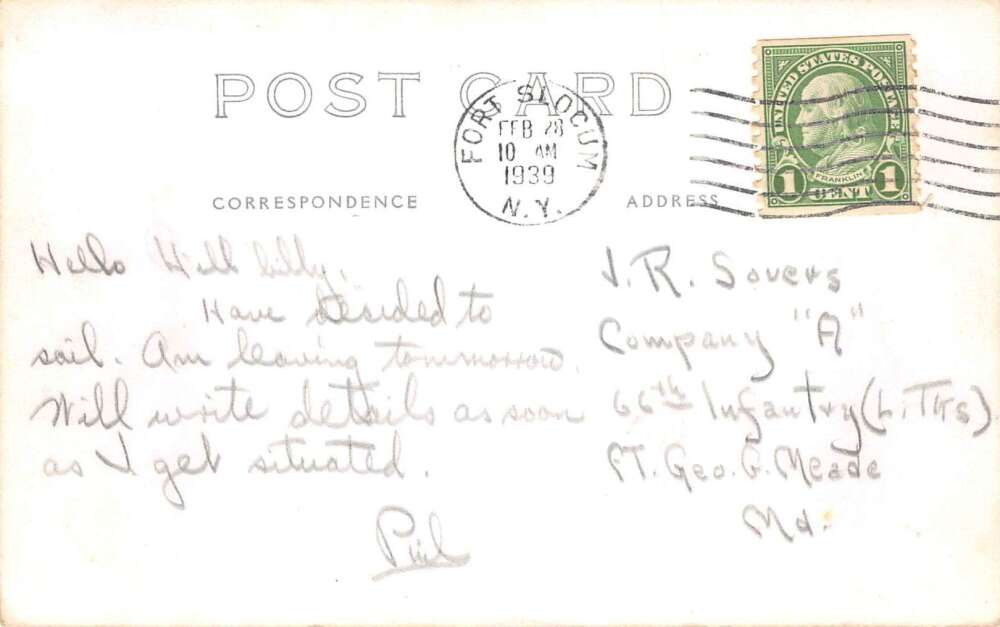 POST CARD
FORT SLOCUM
FEB 28
10 AM
1939
N.Y.
UNITED STATES POSTAGE
FRANKLIN
1 CENT 1
CORRESPONDENCE
ADDRESS
Hello Hill billy,
Have decided to
sail. Am leaving tommorrow.
Will write details as soon
as I get situated.
Phil
J. R. Sovers
Company "A"
66th Infantry (L. Tks)
FT. Geo. G. Meade
Md.